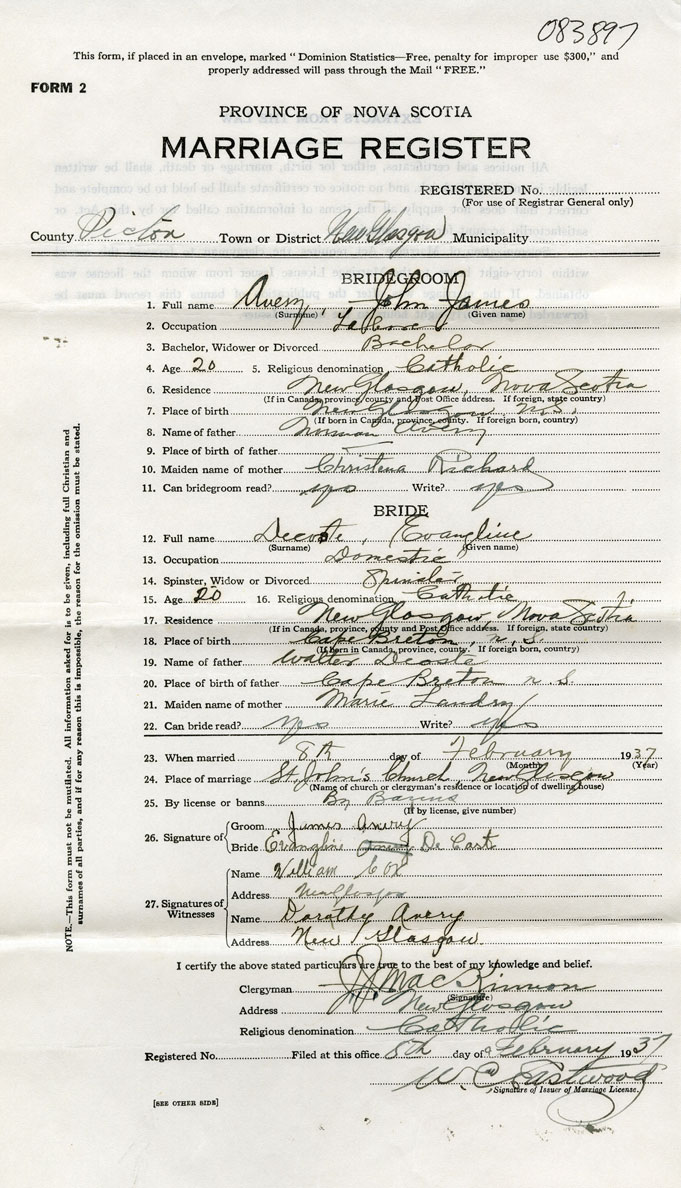 083897
This form, if placed in an envelope, marked "Dominion Statistics—Free, penalty for improper use $300," and
properly addressed will pass through the Mail "FREE."
FORM 2
PROVINCE OF NOVA SCOTIA
MARRIAGE REGISTER
REGISTERED No.
(For use of Registrar General only)
County Pictou Town or District New Glasgow Municipality
BRIDEGROOM
1. Full name Avery, John James
(Surname) (Given name)
2. Occupation Laborer
3. Bachelor, Widower or Divorced Bachelor
4. Age 20 5. Religious denomination Catholic
6. Residence New Glasgow, Nova Scotia
(If in Canada, province, county and Post Office address. If foreign, state country)
7. Place of birth New Glasgow N.S.
(If born in Canada, province, county. If foreign born, country)
8. Name of father Norman Avery
9. Place of birth of father
10. Maiden name of mother Christena Richard
11. Can bridegroom read? yes Write? yes
BRIDE
12. Full name Decoste, Evangline
(Surname) (Given name)
13. Occupation Domestic
14. Spinster, Widow or Divorced Spinster
15. Age 20 16. Religious denomination Catholic
17. Residence New Glasgow, Nova Scotia
(If in Canada, province, county and Post Office address. If foreign, state country)
18. Place of birth Cape Breton, N.S.
(If born in Canada, province, county. If foreign born, country)
19. Name of father Walter Decoste
20. Place of birth of father Cape Breton N.S.
21. Maiden name of mother Marie Landry
22. Can bride read? yes Write? yes
23. When married 8th day of February 1937
(Month) (Year)
24. Place of marriage St. John's Church, New Glasgow
(Name of church or clergyman's residence or location of dwelling house)
25. By license or banns By Banns
(If by license, give number)
26. Signature of
Groom James Avery
Bride Evanglin De Cast
27. Signatures of Witnesses
Name William Cox
Address New Glasgow
Name Dorathy Avery
Address New Glasgow.
I certify the above stated particulars are true to the best of my knowledge and belief.
Clergyman J. J. MacKinnon
(Signature)
Address New Glasgow
Religious denomination Catholic
Registered No. Filed at this office 8th day of February 1937
W. C. Eastwood
Signature of Issuer of Marriage License.
[SEE OTHER SIDE]
NOTE.—This form must not be mutilated. All information asked for is to be given, including full Christian and
surnames of all parties, and if for any reason this is impossible, the reason for the omission must be stated.